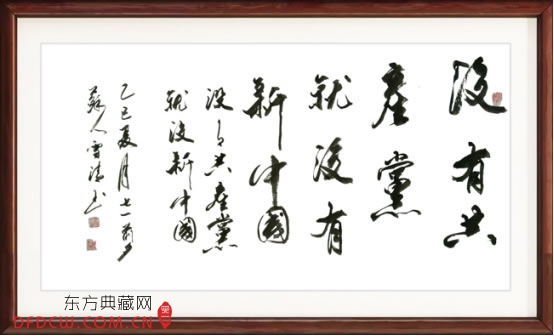 没有共
產黨
就没有
新中國
没有共產黨
就没新中國
乙巳夏月七一前夕
蘇人雪书
东方典藏网
DFDCW.COM.CN